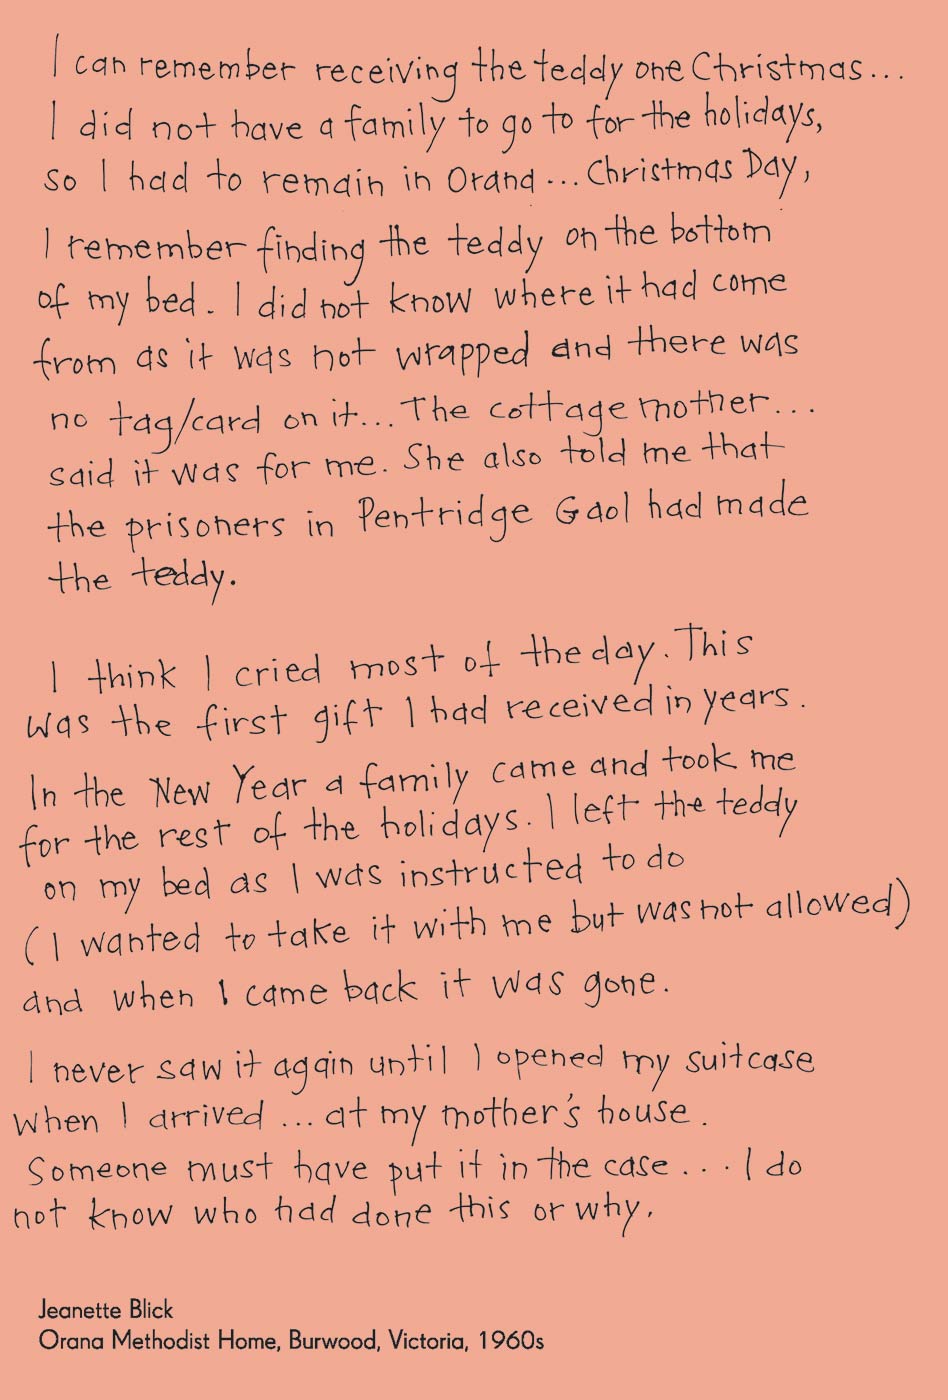 I can remember receiving the teddy one Christmas...
I did not have a family to go to for the holidays,
so I had to remain in Orana... Christmas Day,
I remember finding the teddy on the bottom
of my bed. I did not know where it had come
from as it was not wrapped and there was
no tag/card on it... The cottage mother...
said it was for me. She also told me that
the prisoners in Pentridge Gaol had made
the teddy.
I think I cried most of the day. This
was the first gift I had received in years.
In the New Year a family came and took me
for the rest of the holidays. I left the teddy
on my bed as I was instructed to do
(I wanted to take it with me but was not allowed)
and when I came back it was gone.
I never saw it again until I opened my suitcase
when I arrived... at my mother's house.
Someone must have put it in the case... I do
not know who had done this or why.
Jeanette Blick
Orana Methodist Home, Burwood, Victoria, 1960s